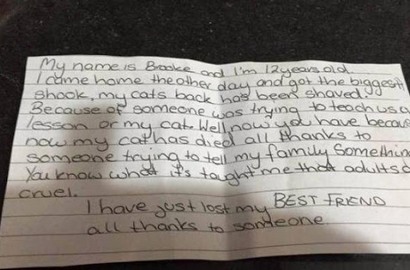 My name is Brooke and I'm 12 years old.
I came home the other day and got the biggest
shook, my cats back has been shaved.
Because of someone was trying to teach us a
lesson or my cat. Well now you have because
now my cat has died all thanks to
someone trying to tell my family Something
You know what it's taught me that adults a
cruel.
I have just lost my BEST FRIEND
all thanks to someone